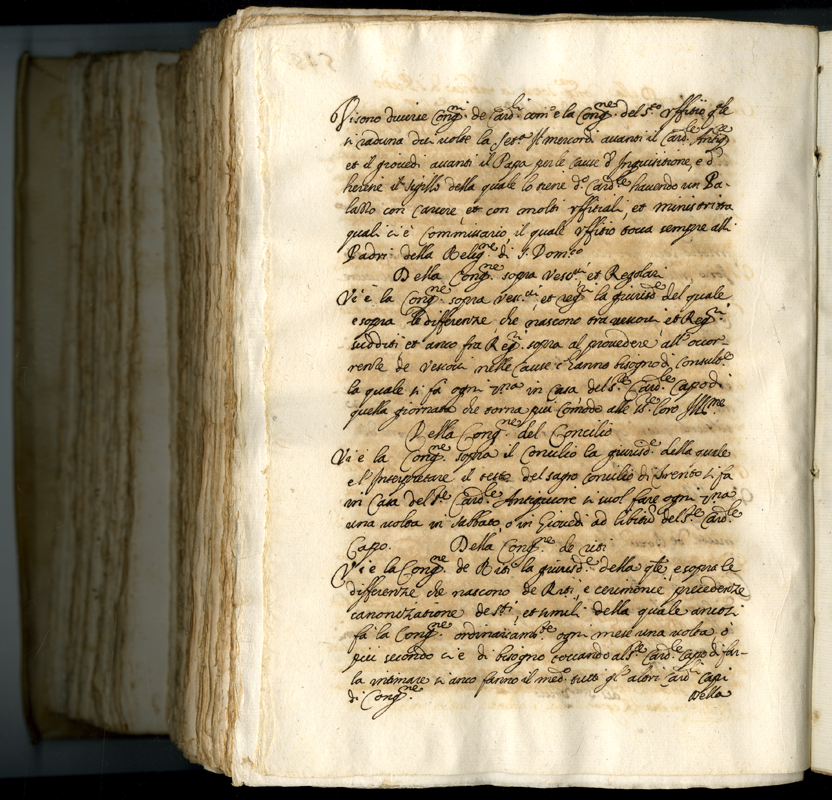 Vi sono diverse Cong.ni de Card.li come la Cong.ne del S.to Uffitio q.le
si raduna due volte la sett.a il mercordì avanti il Card.le Antiq.re
et il giovedì avanti il Papa per le cause d'Inquisitione, e d'
heresie il sigillo della quale lo tiene d.o Card.le havendo un Pa-
lazzo con carcere, et con molti uffitiali, et ministri tra
quali ci è Commissario il quale uffitio tocca sempre alli
Padri della Relig.ne di S. Dom.co
Della Cong.ne sopra Vesc.vi et Regolari
Vi è la Cong.ne sopra Vesc.vi et reg.ri la giurisd.e del quale
e sopra le differenze che nascono tra vescovi et Reg.ri
sudditi et anco fra Reg.ri sopra al provedere all'occor-
renze de Vescovi nelle cause c'hanno bisogno di Consulte
la quale si fa ogni 7.na in Casa del S.r Card.le Capo di
quella giornata che torna più comodo alle SS.e loro Ill.me
Della Cong.ne del Concilio
Vi è la Cong.ne sopra il Concilio la giurisd.e della quale
e l'Interpretare il testo del sagro Concilio di Trento si fa
in Casa del S.r Card.le Antiquiore si suol fare ogni 7.na
una volta in Sabbato, o in Giovedì ad libitu del S.r Card.le
Capo. Della Cong.ne de riti
Vi è la Cong.ne de Riti la giurisd.e della q.le e sopra le
differenze che nascono de Riti, e cerimonie precedenze
canonizatione de sti, et simili della quale ancora
fa la Cong.ne ordinariam.te ogni mese una volta o
più secondo ci è di bisogno toccando al S.r Card.le Capo di far-
la intimare si anco fanno il med.o tutti gl'altri Card.li Capi
di Cong.ne
Della